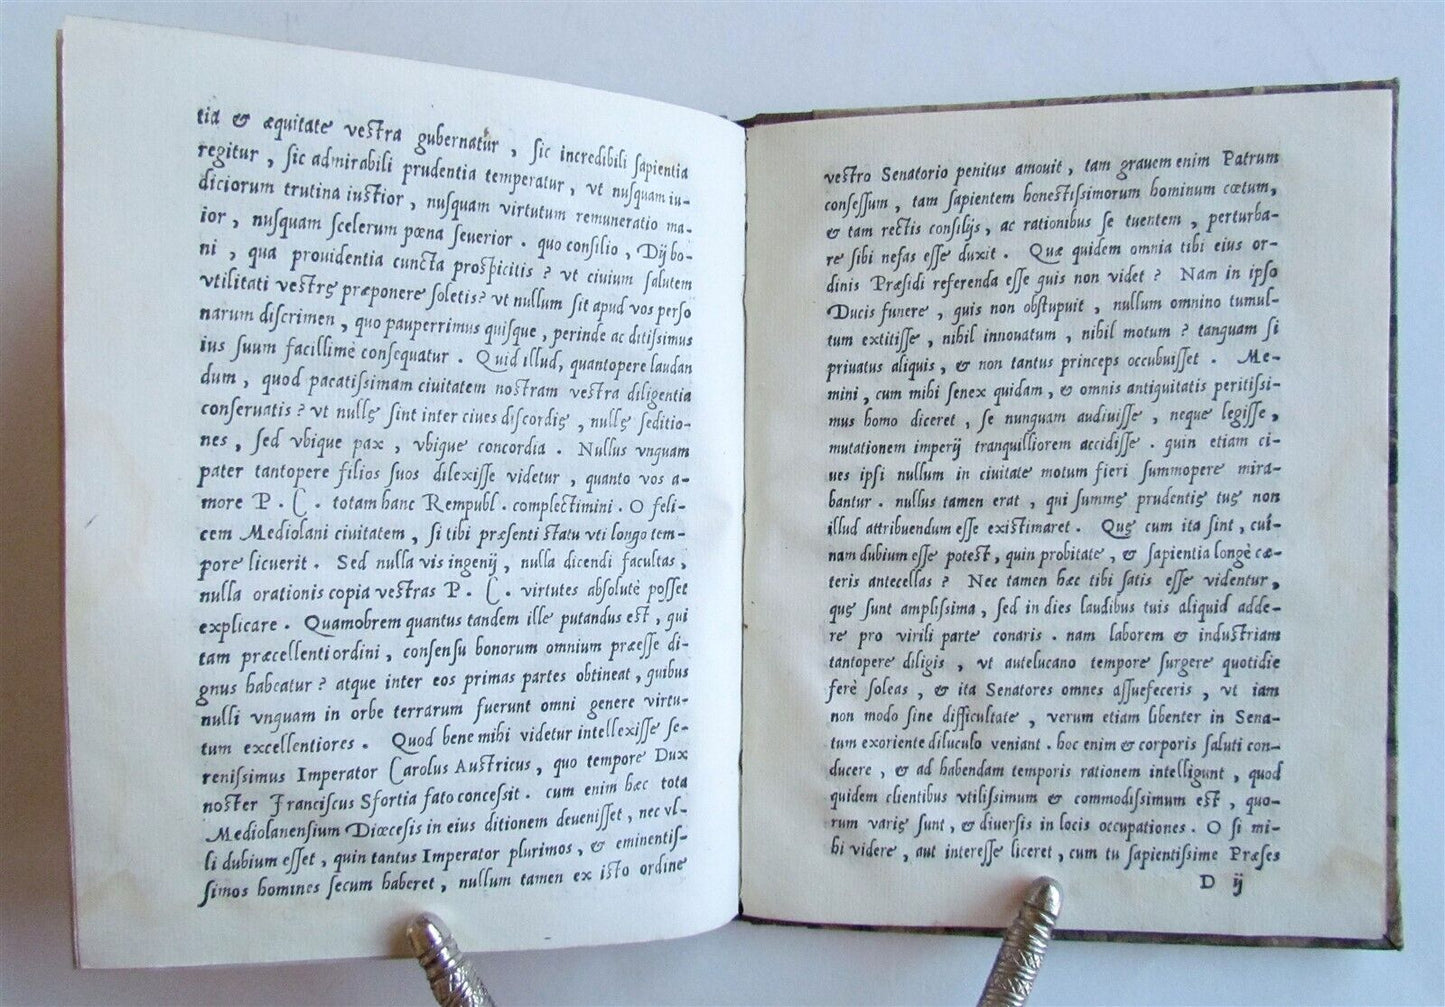 tia & æquitate vestra gubernatur, sic incredibili sapientia
regitur, sic admirabili prudentia temperatur, vt nusquam iu-
diciorum trutina iustior, nusquam virtutum remuneratio ma-
ior, nusquam scelerum pœna seuerior. quo consilio, Dij bo-
ni, qua prouidentia cuncta prospicitis? vt ciuium salutem
vtilitati vestrę præponere soletis? vt nullum sit apud vos perso
narum discrimen, quo pauperrimus quisque, perinde ac ditissimus
ius suum facillimè consequatur. Quid illud, quantopere laudan
dum, quod pacatissimam ciuitatem nostram vestra diligentia
conseruatis? vt nullę sint inter ciues discordię, nullę seditio-
nes, sed vbique pax, vbique concordia. Nullus vnquam
pater tantopere filios suos dilexisse videtur, quanto vos a-
more P. C. totam hanc Rempubl. complectimini. O feli-
cem Mediolani ciuitatem, si tibi præsenti statu vti longo tem-
pore licuerit. Sed nulla vis ingenij, nulla dicendi facultas,
nulla orationis copia vestras P. C. virtutes absolutè posset
explicare. Quamobrem quantus tandem ille putandus est, qui
tam præcellenti ordini, consensu bonorum omnium præesse di-
gnus habeatur? atque inter eos primas partes obtineat, quibus
nulli vnquam in orbe terrarum fuerunt omni genere virtu-
tum excellentiores. Quod bene mihi videtur intellexisse se-
renissimus Imperator Carolus Austricus, quo tempore Dux
noster Franciscus Sfortia fato concessit. cum enim hæc tota
Mediolanensium Diœcesis in eius ditionem deuenisset, nec vl-
li dubium esset, quin tantus Imperator plurimos, & eminentis-
simos homines secum haberet, nullum tamen ex isto ordine
vestro Senatorio penitus amouit, tam grauem enim Patrum
consessum, tam sapientem honestissimorum hominum cœtum,
& tam rectis consilijs, ac rationibus se tuentem, perturba-
re sibi nefas esse duxit. Quæ quidem omnia tibi eius or-
dinis Præsidi referenda esse quis non videt? Nam in ipso
Ducis funere, quis non obstupuit, nullum omnino tumul-
tum extitisse, nihil innouatum, nihil motum? tanquam si
priuatus aliquis, & non tantus princeps occubuisset. Me-
mini, cum mihi senex quidam, & omnis antiquitatis peritissi-
mus homo diceret, se nunquam audiuisse, neque legisse,
mutationem imperij tranquilliorem accidisse. quin etiam ci-
ues ipsi nullum in ciuitate motum fieri summopere mira-
bantur. nullus tamen erat, qui summę prudentię tuę non
illud attribuendum esse existimaret. Quę cum ita sint, cui-
nam dubium esse potest, quin probitate, & sapientia longè cæ-
teris antecellas? Nec tamen hæc tibi satis esse videntur,
quę sunt amplissima, sed in dies laudibus tuis aliquid adde-
re pro virili parte conaris. nam laborem & industriam
tantopere diligis, vt autelucano tempore surgere quotidie
ferè soleas, & ita Senatores omnes assuefeceris, vt iam
non modo sine difficultate, verum etiam libenter in Sena-
tum exoriente diluculo veniant. hoc enim & corporis saluti con-
ducere, & ad habendam temporis rationem intelligunt, quod
quidem clientibus vtilissimum & commodissimum est, quo-
rum varię sunt, & diuersis in locis occupationes. O si mi-
hi videre, aut interesse liceret, cum tu sapientissime Præses
D ij